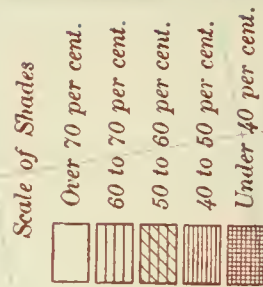 Scale of Shades
Over 70 per cent.
60 to 70 per cent.
50 to 60 per cent.
40 to 50 per cent.
Under 40 per cent.